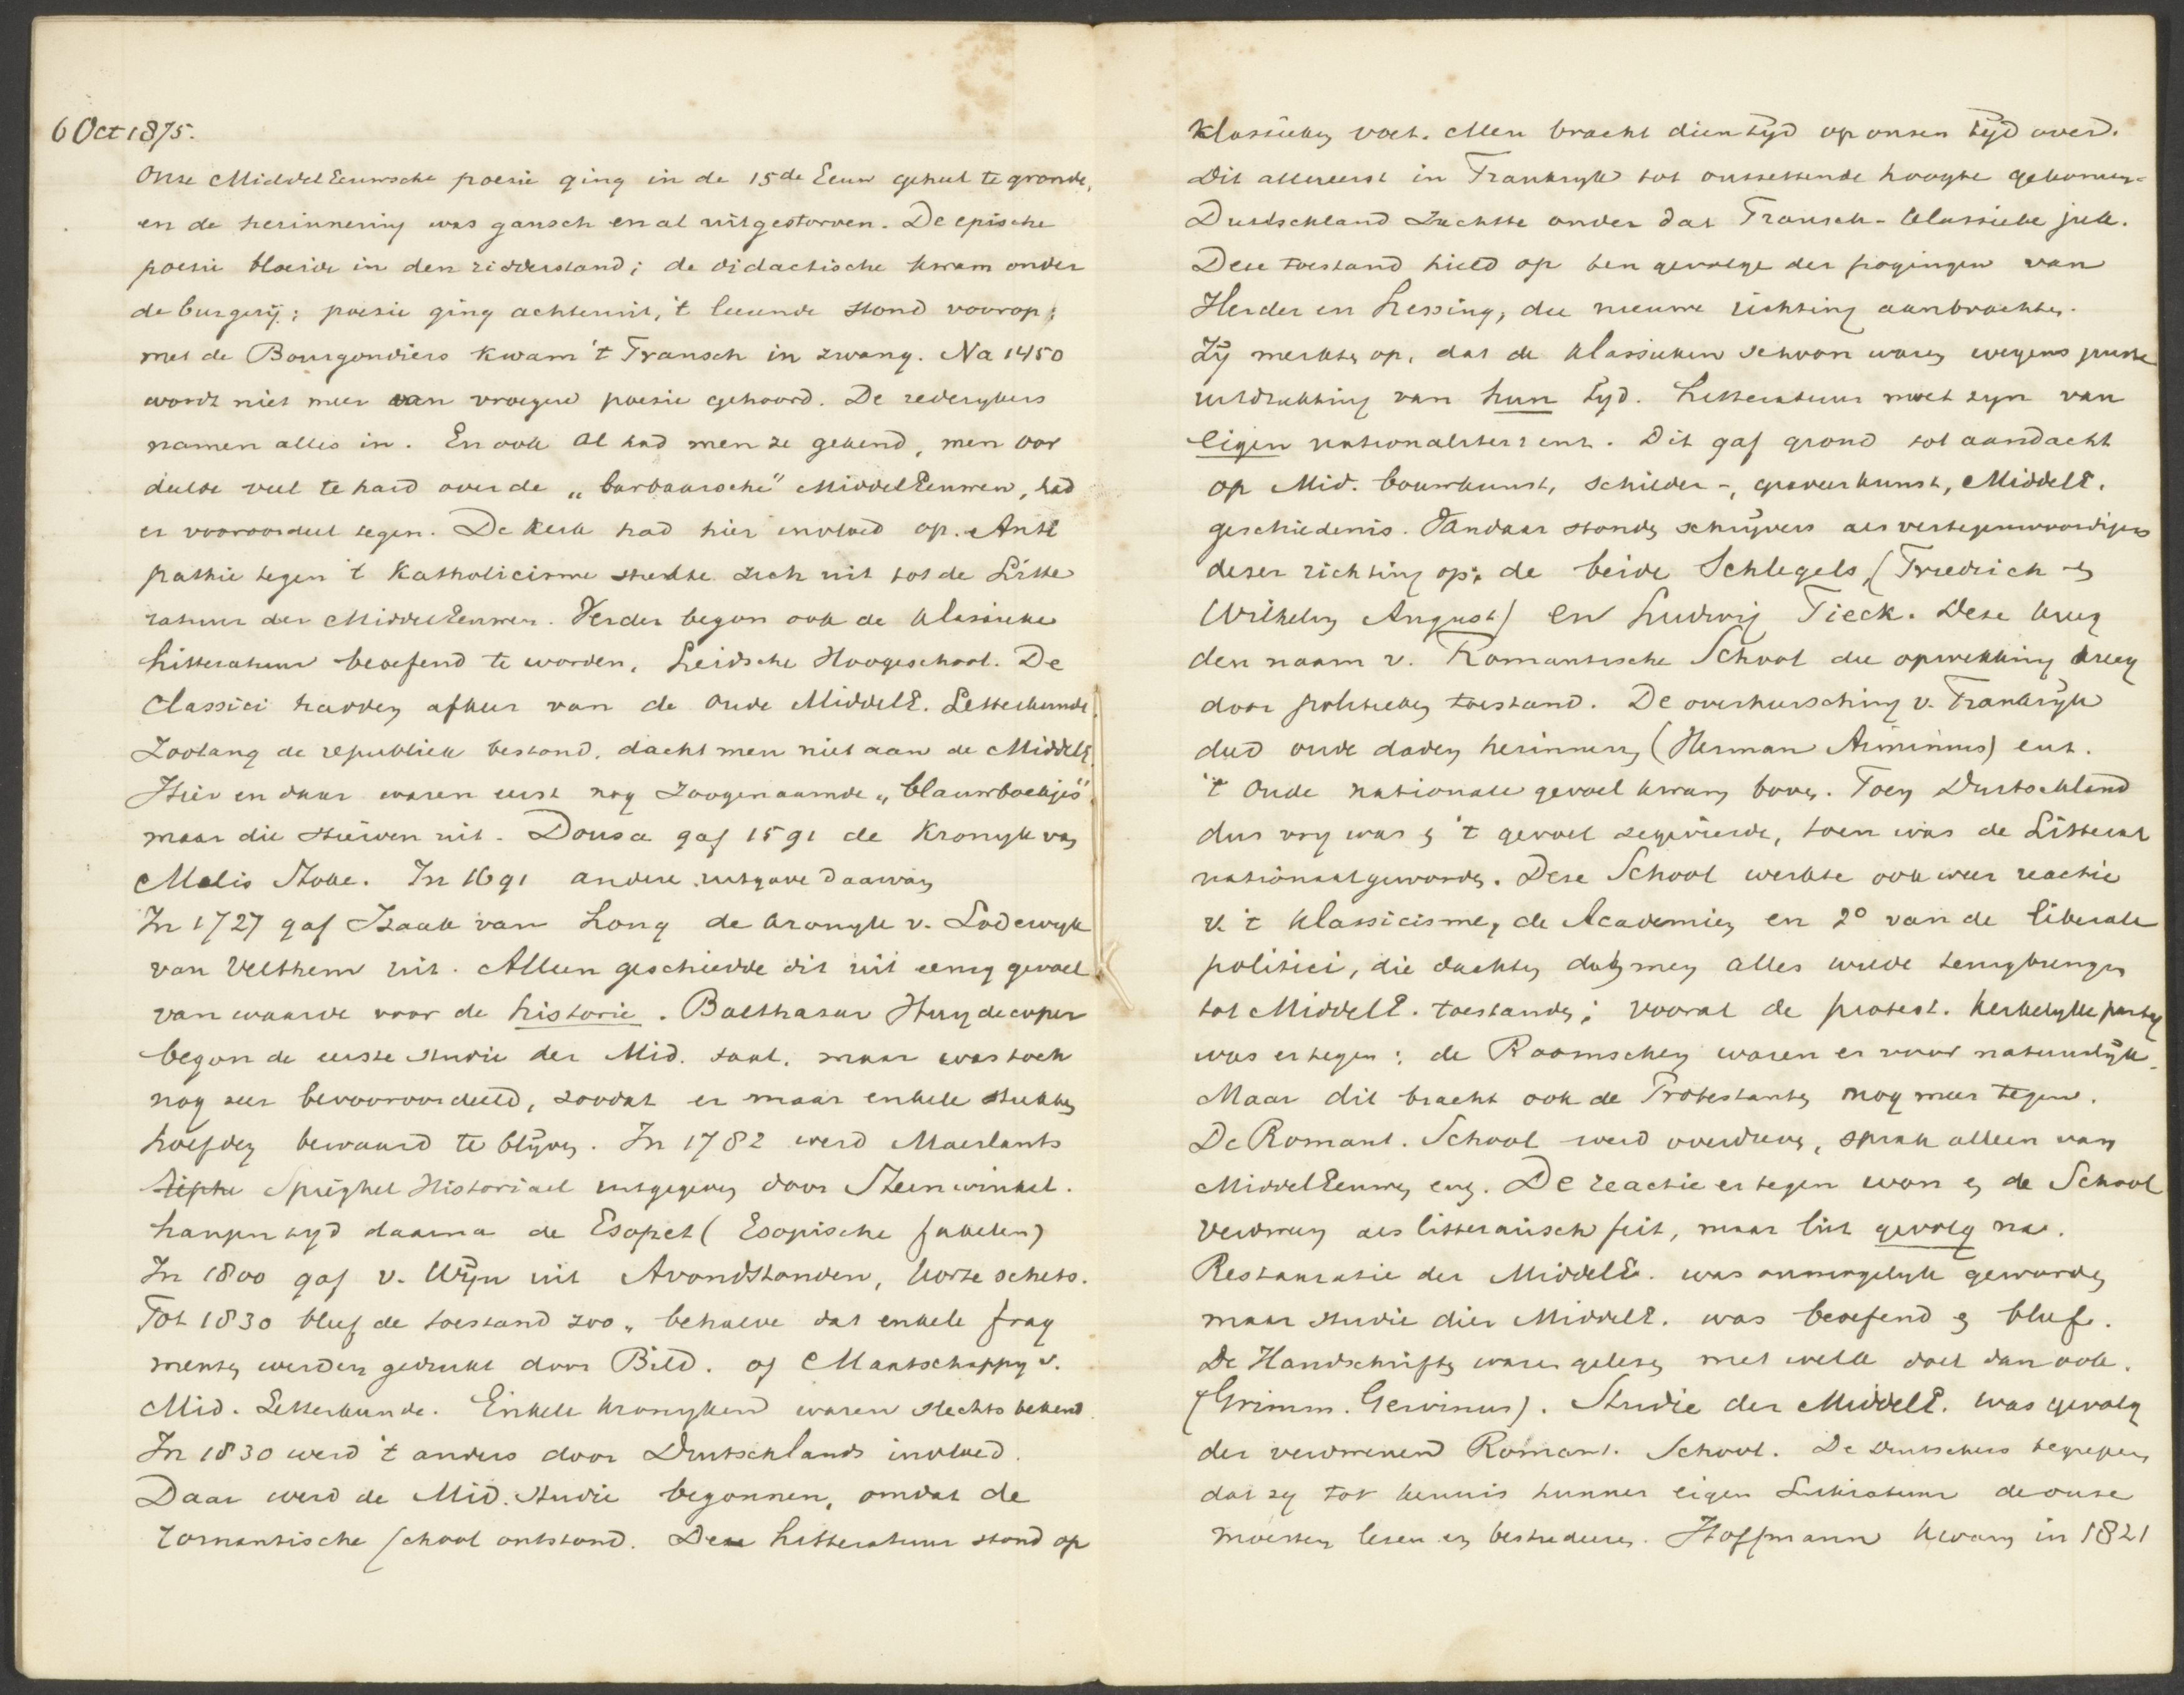 6 Oct 1875.
Onze MiddelEeuwsche poesie ging in de 15de Eeuw geheel te gronde,
en de herinnering was gansch en al uitgestorven. De epische
poesie bloeide in den ridderstand; de didactische kwam onder
de burgerij; poesie ging achteruit, 't leerende stond voorop;
met de Bourgondiers kwam 't Fransch in zwang. Na 1450
wordt niet meer van vroegere poesie gehoord. De rederykers
namen alles in. En ook al had men ze gekend, men oor
deelde veel te hard over de „barbaarsche" MiddelEeuwen, had
er vooroordeel tegen. De kerk had hier invloed op. Anti
pathie tegen 't Katholicisme strekte zich uit tot de Litte
ratuur der MiddelEeuwen. Verder begon ook de klassieke
Litteratuur beoefend te worden, Leidsche Hoogeschool. De
Classici hadden afkeur van de oude MiddelE. Letterkunde.
Zoolang de republiek bestond, dacht men niet aan de MiddelE.
Hier en daar waren eerst nog zoogenaamde „blauwboekjes"
maar die stierven uit. Dousa gaf 1591 de Kronyk van
Melis Stoke. In 1691 andere uitgave daarvan
In 1727 gaf Isaak van Long de kronyk v. Lodewyk
van Velthem uit. Alleen geschiedde dit uit eenig gevoel
van waarde voor de historie. Balthasar Huydecoper
begon de eerste studie der Mid. taal, maar was toch
nog zeer bevooroordeeld, zoodat er maar enkele stukken
hoefden bewaard te blijven. In 1782 werd Maerlants
Spieghel Historiael uitgegeven door Steenwinkel.
Langen tyd daarna de Esopet (Esopische fabelen)
In 1800 gaf v. Wijn uit Avondstonden, korte schets.
Tot 1830 bleef de toestand zoo, behalve dat enkele frag
menten werden gedrukt door Bild. of Maatschappy v.
Mid. Letterkunde. Enkele kronyken waren slechts bekend.
In 1830 werd 't anders door Duitschlands invloed.
Daar werd de Mid. Studie begonnen, omdat de
romantische school ontstond. Deze Litteratuur stond op
klassieken voet. Men bracht dien tyd op onzen tijd over.
Dit allereerst in Frankryk tot ontzettende hoogte gekomen.
Duitschland zuchtte onder dat Fransch-klassieke juk.
Deze toestand hield op ten gevolge der pogingen van
Herder en Lessing, die nieuwe richting aanbrachten.
Zij merkten op, dat de klassieken schoon waren wegens juiste
uitdrukking van hun tyd. Litteratuur moet zyn van
eigen nationaliteit enz. Dit gaf grond tot aandacht
op Mid. bouwkunst, schilder-, graveerkunst, MiddelE.
geschiedenis. Vandaar stonden schrijvers als vertegenwoordigers
dezer richting op: de beide Schlegels, (Friedrich en
Wilhelm August) en Ludwig Tieck. Deze kreeg
den naam v. Romantische School die opwekking kreeg
door politieken toestand. De overheersching v. Frankrijk
deed oude daden herinneren (Herman Arminius) enz.
't Oude nationale gevoel kwam boven. Toen Duitschland
dus vry was en 't gevoel zegevierde, toen was de Litterat
nationaal geworden. Deze School werkte ook weer reactie
v. 't klassicisme, de Academien en 2° van de liberale
politici, die dachten dat men alles wilde terugbrengen
tot MiddelE. toestanden; vooral de protest. kerkelyke party
was er tegen; de Roomschen waren er voor natuurlijk.
Maar dit bracht ook de Protestanten nog meer tegen.
De Romant. School werd overdreven, sprak alleen van
MiddelEeuwen enz. De reactie er tegen won en de School
verdween als litterarisch feit, maar liet gevolg na.
Restauratie der MiddelE. was onmogelyk geworden
maar studie dier MiddelE. was beoefend en bleef.
De Handschriften waren gelezen met welk doel dan ook.
(Grimm. Gervinus). Studie der MiddelE. was gevolg
der verdwenen Romant. School. De Duitschers begrepen
dat zy tot kennis hunner eigen Litteratuur de oude
moesten lezen en bestudeeren. Hoffmann kwam in 1821